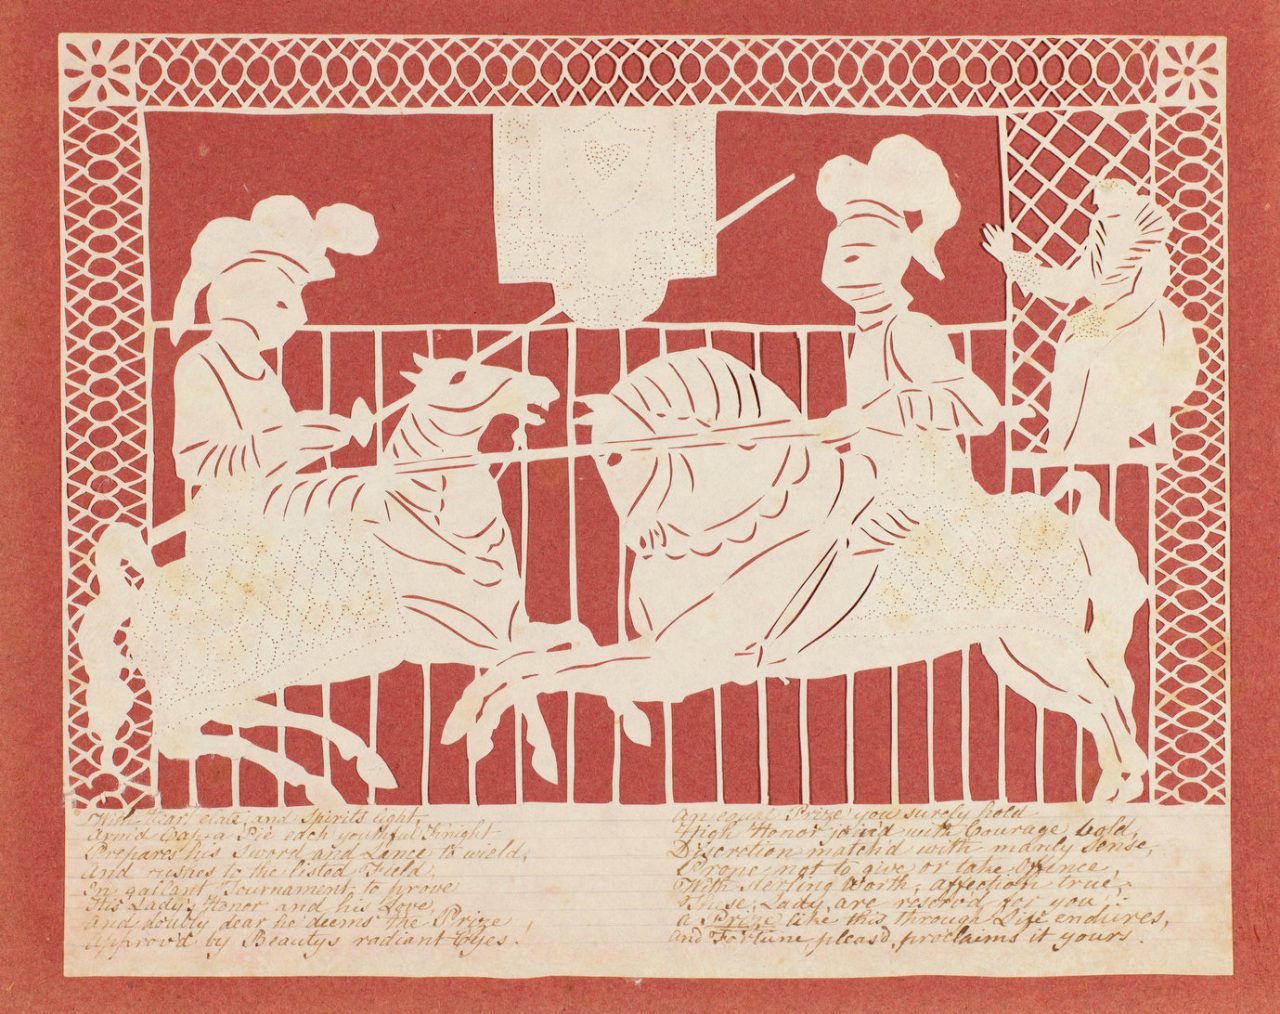 With Heart elate, and Spirits light,
Arm'd Cap-a Pie each youthful Knight
Prepares his Sword and Lance to wield,
And rushes to the listed Field.
In gallant Tournament to prove
His Lady's Honor and his Love,
and doubly dear he deems the Prize
Approv'd by Beauty's radiant Eyes.
An equal Prize you surely hold
High Honor join'd with Courage bold,
Discretion match'd with manly Sense,
Prone not to give or take Offence,
With sterling Worth, affection true,
These Lady are reserv'd for you,
a Prize like this through Life endures,
and Fortune pleas'd, proclaims it yours.